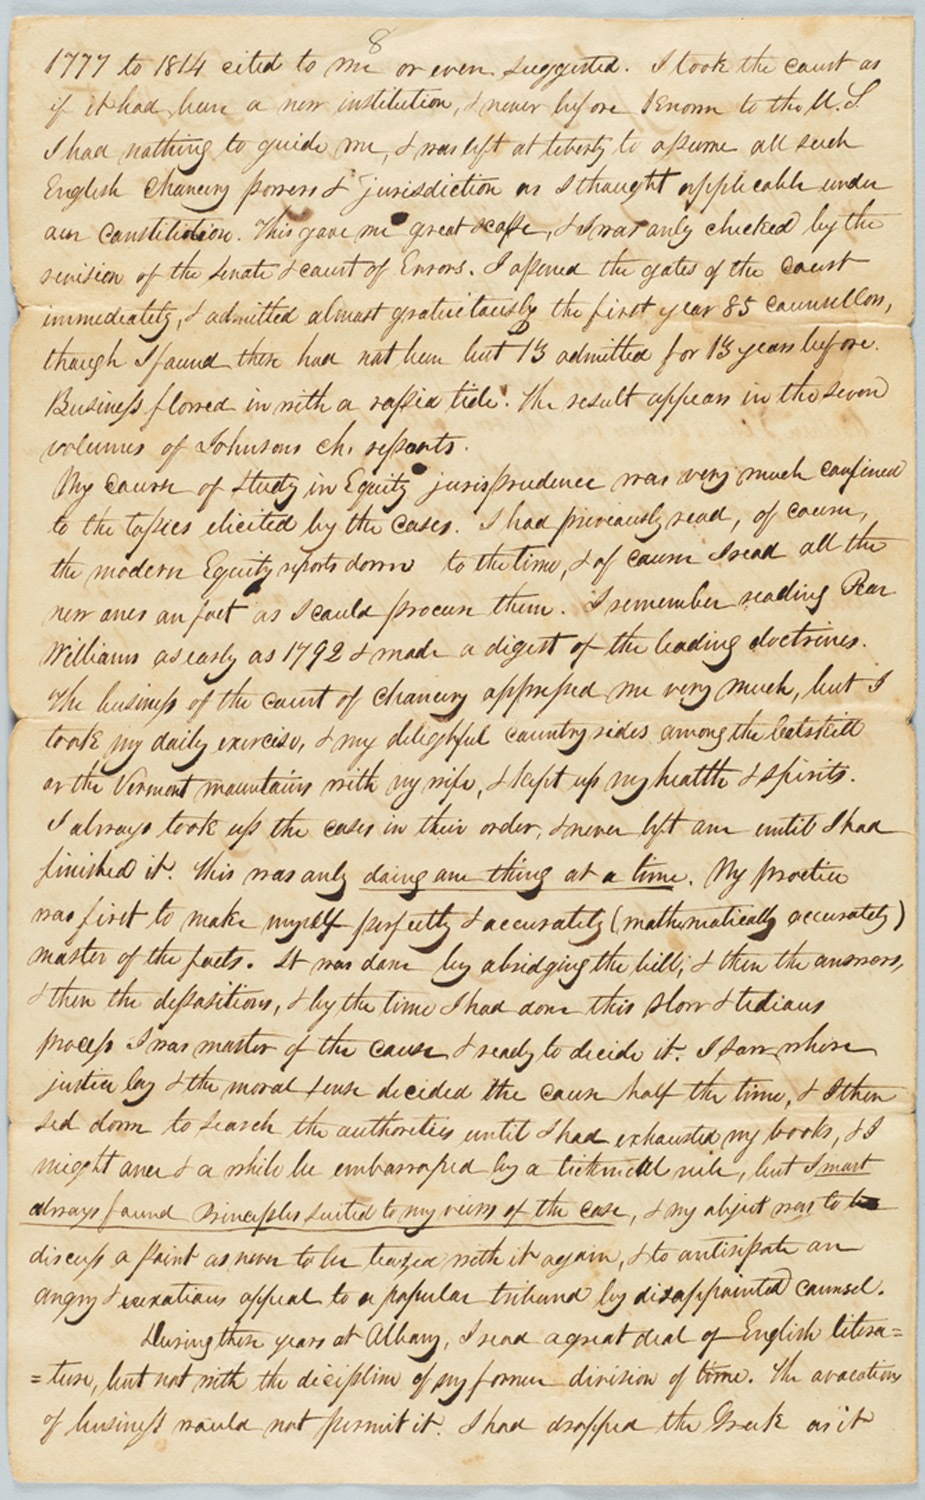 8
1777 to 1814 cited to me or even suggested. I took the court as
if it had been a new institution, & never before known to the U.S.
I had nothing to guide me, & was left at liberty to assume all such
English Chancery powers & jurisdiction as I thought applicable under
our Constitution. This gave me great scope, & I was only checked by the
revision of the Senate & court of Errors. I opened the gates of the court
immediately, & admitted almost gratuitously the first year 85 counsellors,
though I found there had not been but 13 admitted for 13 years before.
Business flowed in with a rapid tide. The result appears in the seven
volumes of Johnsons ch. reports.
My course of study in Equity jurisprudence was very much confined
to the topics elicited by the cases. I had previously read, of course,
the modern Equity reports down to the time, & of course I read all the
new ones as fast as I could procure them. I remember reading Pear
Williams as early as 1792 & made a digest of the leading doctrines.
The business of the court of chancery oppressed me very much, but I
took my daily exercise, & my delightful country rides among the Catskill
or the Vermont mountains with my wife, & kept up my health & spirits.
I always took up the cases in their order, & never left one until I had
finished it. This was only doing one thing at a time. My practice
was first to make myself perfectly & accurately (mathematically accurately)
master of the facts. It was done by abridging the bill, & then the answers,
& then the depositions, & by the time I had done this slow & tedious
process I was master of the cause & ready to decide it. I saw where
justice lay & the moral sense decided the cause half the time, & I then
sed down to search the authorities until I had exhausted my books, & I
might once & a while be embarrassed by a technical rule, but I most
always found Principles suited to my views of the case, & my object was to
discuss a point as never to be teazed with it again, & to antisipate an
angry & vexatious appeal to a popular tribunal by disappointed counsel.
During these years at Albany, I read a great deal of English litera=
=ture, but not with the discipline of my former division of time. The avocations
of business would not permit it. I had dropped the Greek as it